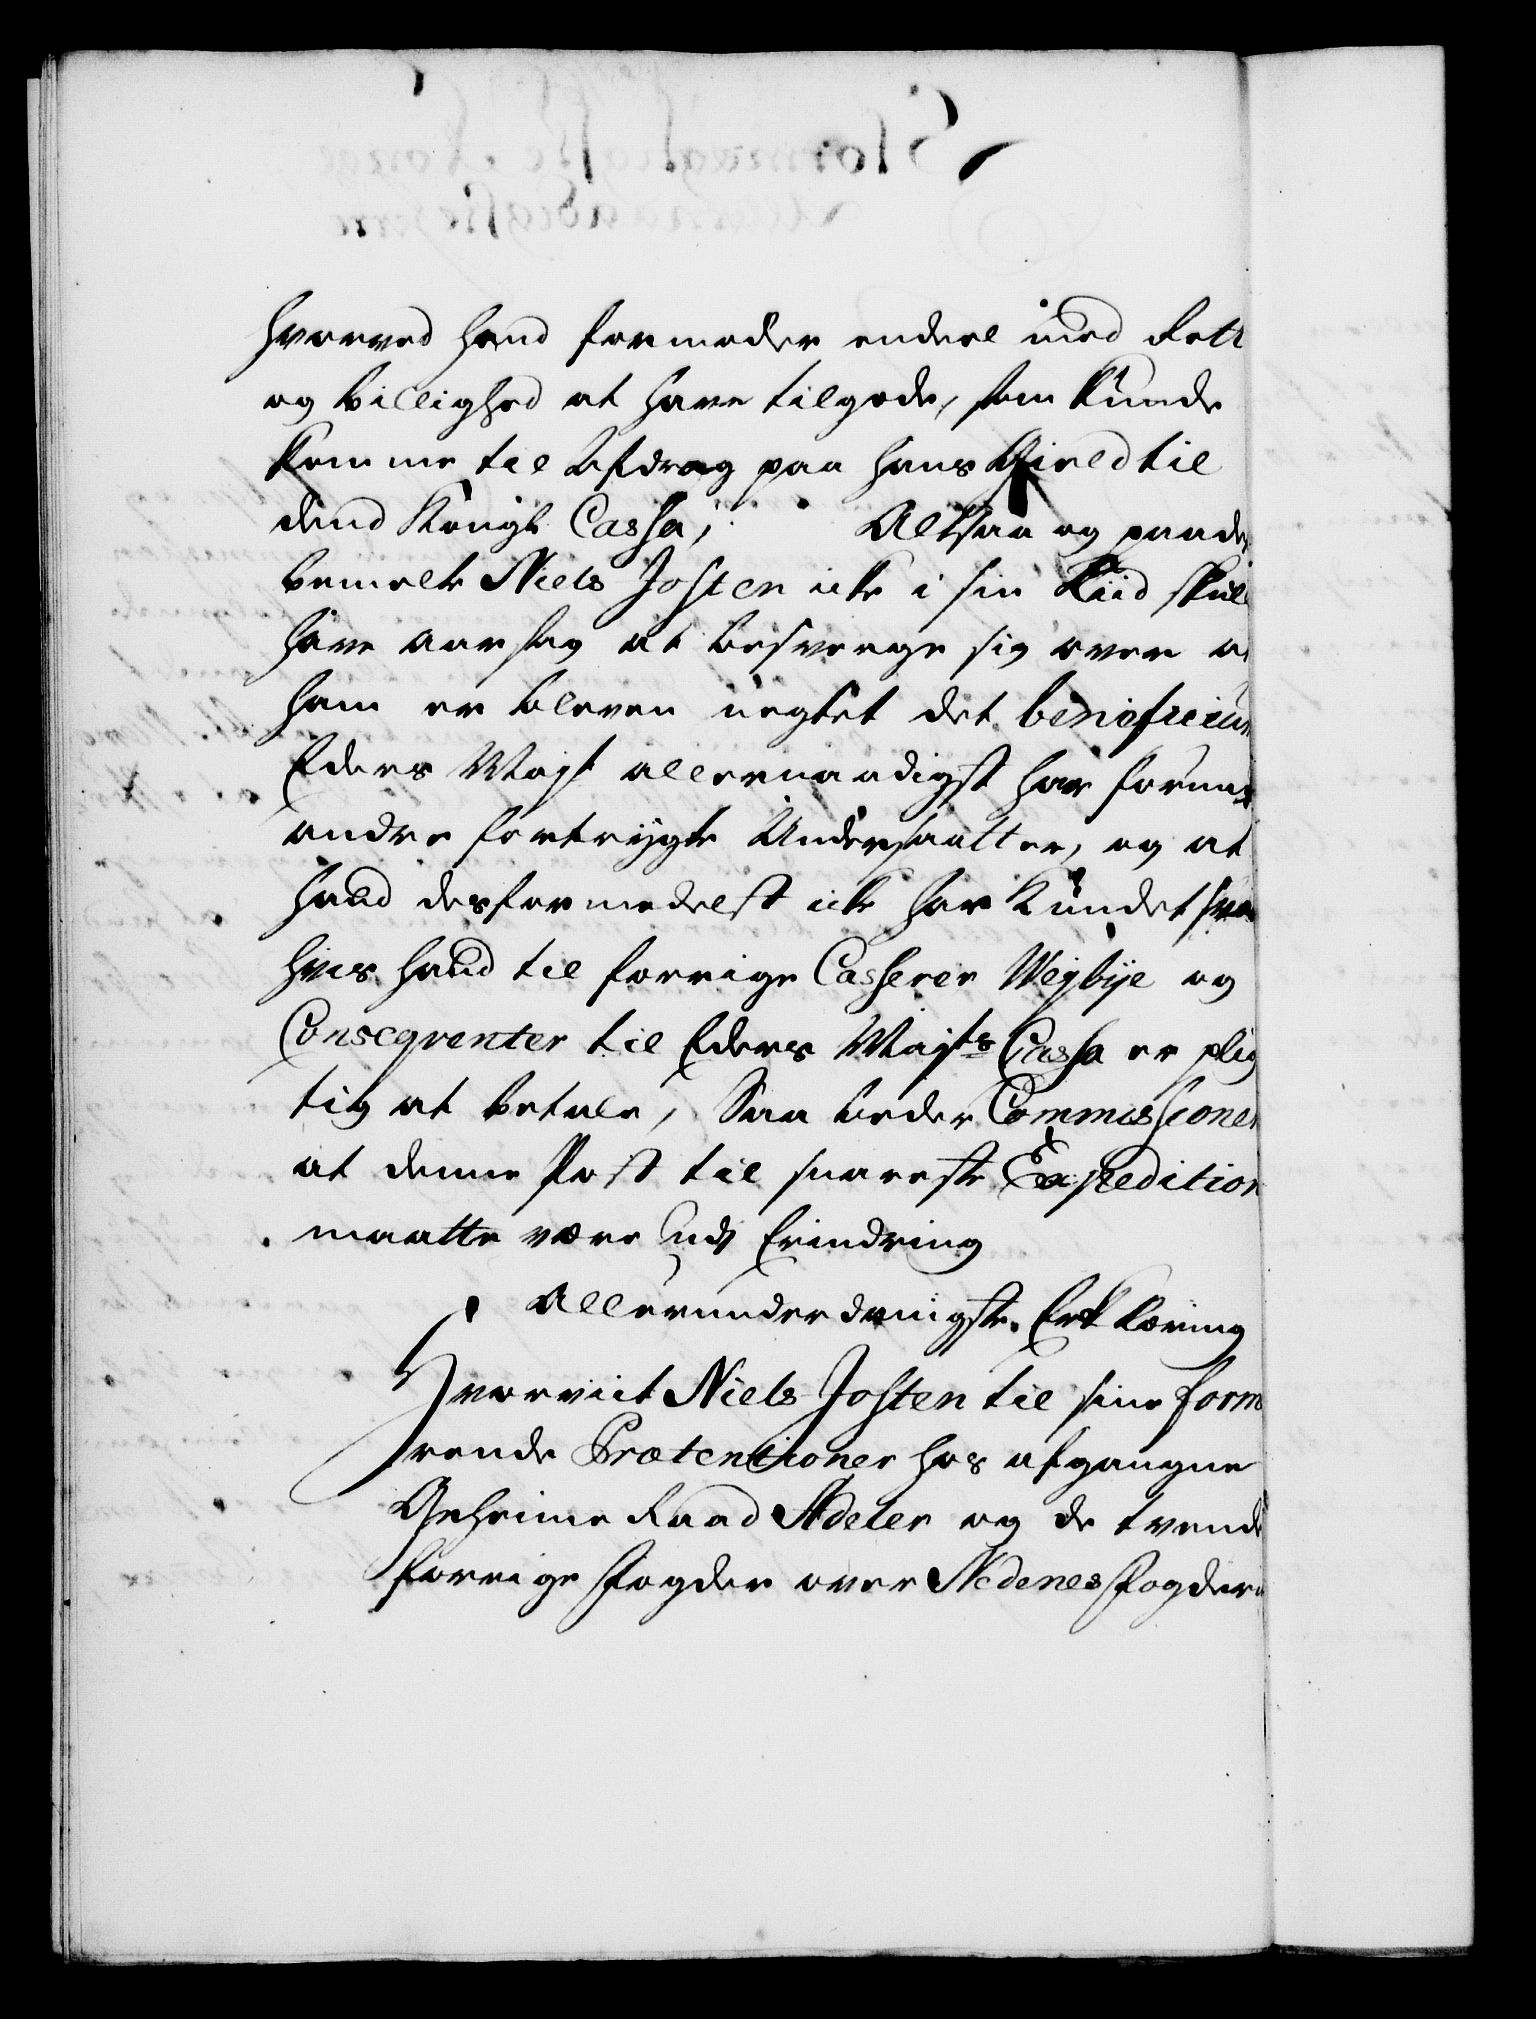 hvorved hand formoder endeel med Rett
og billighed at have tilgode, som kunde
komme til Afdrag paa hans Gield til
dend Kongl Cassa; Altsaa og paa det
bemelte Niels Josten icke i sin tiid skull
have aarsag at besverge sig over at
ham er bleven negtet det beneficium
Eders Mayt allernaadigst har forundt
andre fortrygte Undersaatter, og at
hand desformedelst icke har kundet svare
hvis hand til forrige Casserer Wejbye og
Conseqventer til Eders Mayts Cassa er plig
tig at betale, Saa beder Commissionen
at denne Post til snareste Expedition
maatte være udj Erindring
Allerunderdanigste Erklæring
Hvorvit Niels Josten til sine forme
rende Prætentioner hos afgangne
Geheime Raad Adeler og de tvende
forrige fogder over Nedenes fogderi